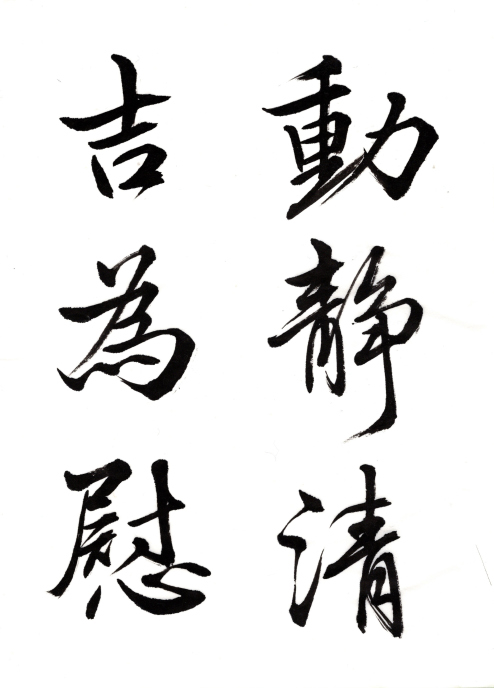 動静清
吉為慰